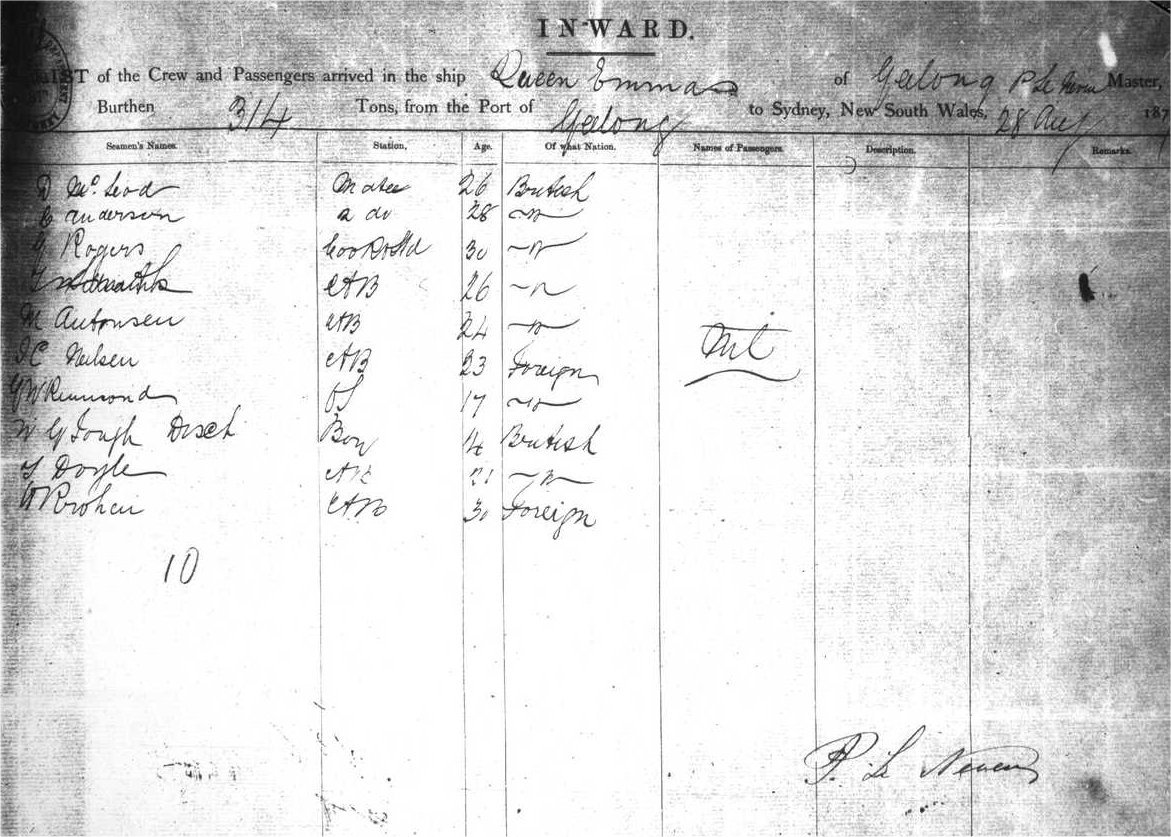 INWARD.
LIST of the Crew and Passengers arrived in the ship Queen Emma of Geelong P Le Neveu Master,
Burthen 314 Tons, from the Port of Geelong to Sydney, New South Wales, 28 Aug 187
Seamen's Names. Station. Age. Of what Nation. Names of Passengers. Description. Remarks.
D McLeod Mate 26 British
Anderson 2 do 28 "
Rogers Cook & Std 30 "
AB 26 "
M Antonsen AB 24 "
Nil
J C Neilsen AB 23 Foreign
OS 17 "
W G Gough Boy 14 British
T Doyle AB 21 "
AB 30 Foreign
10
P. Le Neveu